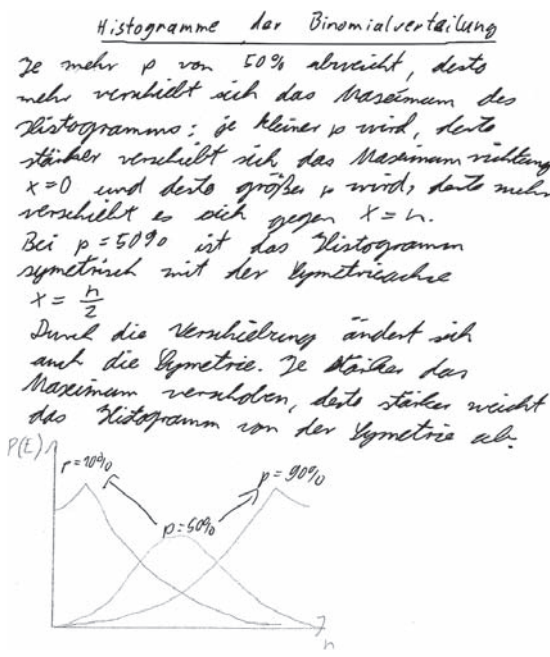 Histogramme der Binomialverteilung
Je mehr p von 50% abweicht, desto
mehr verschiebt sich das Maximum des
Histogramms: je kleiner p wird, desto
stärker verschiebt sich das Maximum richtung
x=0 und desto größer p wird, desto mehr
verschiebt es sich gegen x=n.
Bei p=50% ist das Histogramm
symetrisch mit der Symetrieachse
x = n/2
Durch die Verschiebung ändert sich
auch die Symetrie. Je stärker das
Maximum verschoben, desto stärker weicht
das Histogramm von der Symetrie ab.
P(E)
p=10%
p=90%
p=50%
n